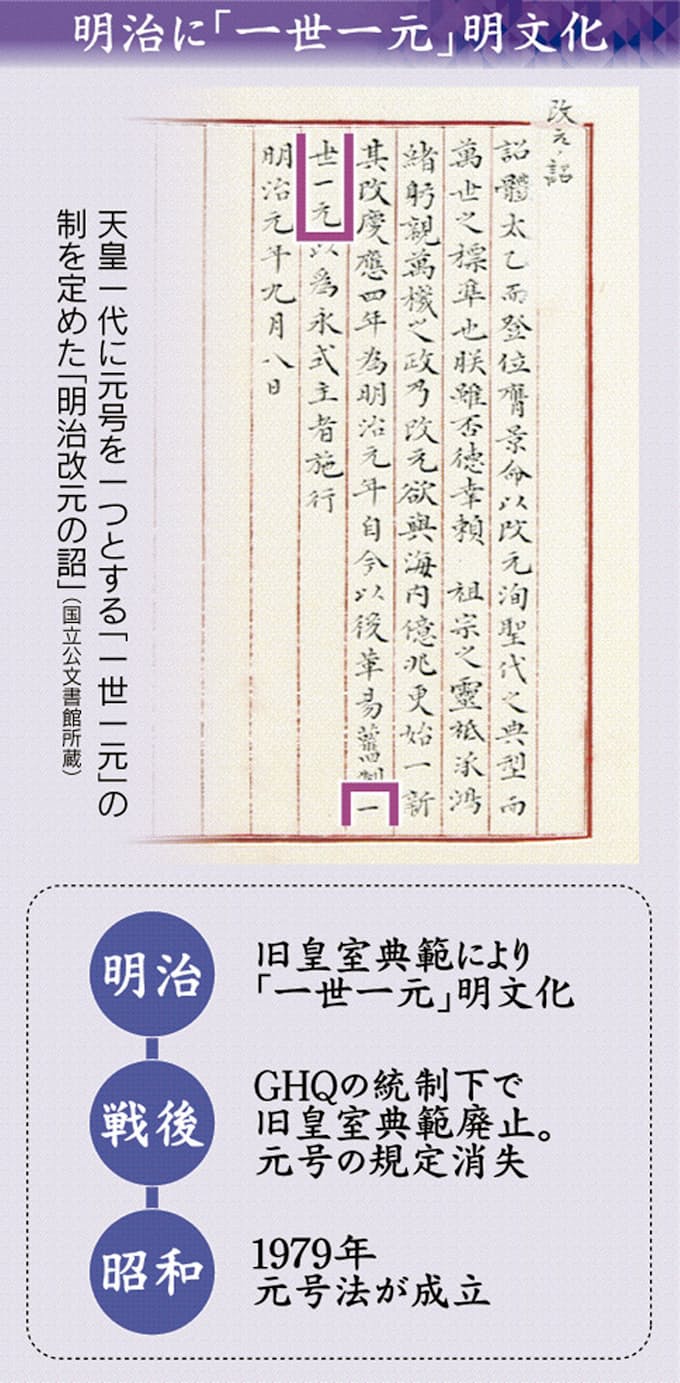 明治に「一世一元」明文化
改元ノ詔
詔體太乙而登位膺景命以改元洵聖代之典型而
萬世之標準也朕雖否德幸賴 祖宗之靈祗承鴻
緒躬親萬機之政乃改元欲與海内億兆更始一新
其改慶應四年爲明治元年自今以後革易舊制一
世一元以爲永式主者施行
明治元年九月八日
天皇一代に元号を一つとする「一世一元」の
制を定めた「明治改元の詔」(国立公文書館所蔵)
明治
旧皇室典範により
「一世一元」明文化
戦後
GHQの統制下で
旧皇室典範廃止。
元号の規定消失
昭和
1979年
元号法が成立